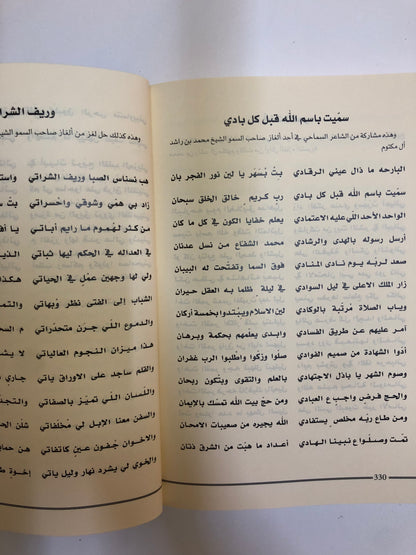 سمّيت باسم الله قبل كل بادي
وهذه مشاركة من الشاعر السماحي في أحد ألغاز صاحب السمو الشيخ محمد بن راشد
آل مكتوم
البارحه ما ذال عيني الرقادي بتّ نسهر يا لين نور الفجر بان
سمّيت باسم الله قبل كل بادي رب كريم خالق الخلق سبحان
الواحد الأحد اللي عليه الاعتمادي يعلم خفايا الكون في كل ما كان
أرسل رسوله بالهدى والرشادي محمد الشفاع من نسل عدنان
وصعد لربّه يوم نادى المنادي فوق السما وتفتحت له البيبان
زار الملاء الاعلى في ليل السوادي في ليلة ظلما به العقل حيران
وياب الصلاة مرتّبة بالوكادي لين الاسلام ويبتدوا بخمسة أركان
آمر عليهم عن طريق الفسادي وابدى يعلمهم بحكمة وبرهان
أدوا الشهادة من صميم الفوادي صلوا وزكوا واطلبوا الرب غفران
وصوم الشهر يا باذل الاجتهادي بالعلم والتقوى ويتكون ريحان
والحج فرض واجب ع العبادي ومن حج بيت الله تمسّك بالإيمان
ومن طاع ربّه مخلص يستفادي الله يجيره من صعيبات الامحان
تمت وصلوا ع نبينا الهادي أعداد ما هبت من الشرق ذنان
330
وريف الشرا
وهذه كذلك حل لغز من ألغاز صاحب السمو الشيخ
هب نسناس الصبا وريف الشراتي
زاد بي همّي وشوقي واحسراتي
من كثر لهموم ما رايم أباتي
في العداله في الحكم ليها ثباتي
ولي لها وجهين عمل في الحياتي
الشباب إلى الفتى نظر وبهاتي
والدموع اللي جرن متحدراتي
هذا ميزان النجوم العالياتي
والقلم ساجد على الاوراق ياتي
والسان اللي تميّز بالصفاتي
والسفن معنا الابل ل مخلفاتي
والاخوان جفون عين كاتفاتي
والخوي لي يشرد نهار وليل ياتي